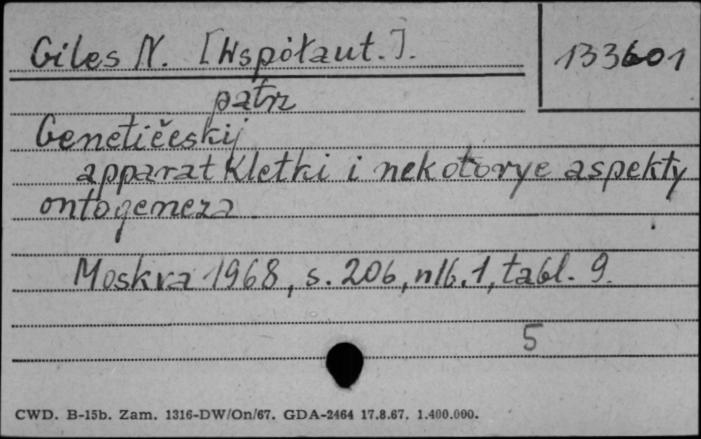 Giles N. [Współaut.].
133601
patrz
Genetičeskij
apparat kletki i nekotorye aspekty
ontogeneza.
Moskva 1968, s. 206, nlb. 1, tabl. 9.
5
CWD. B-15b. Zam. 1316-DW/On/67. GDA-2464 17.8.67. 1.400.000.